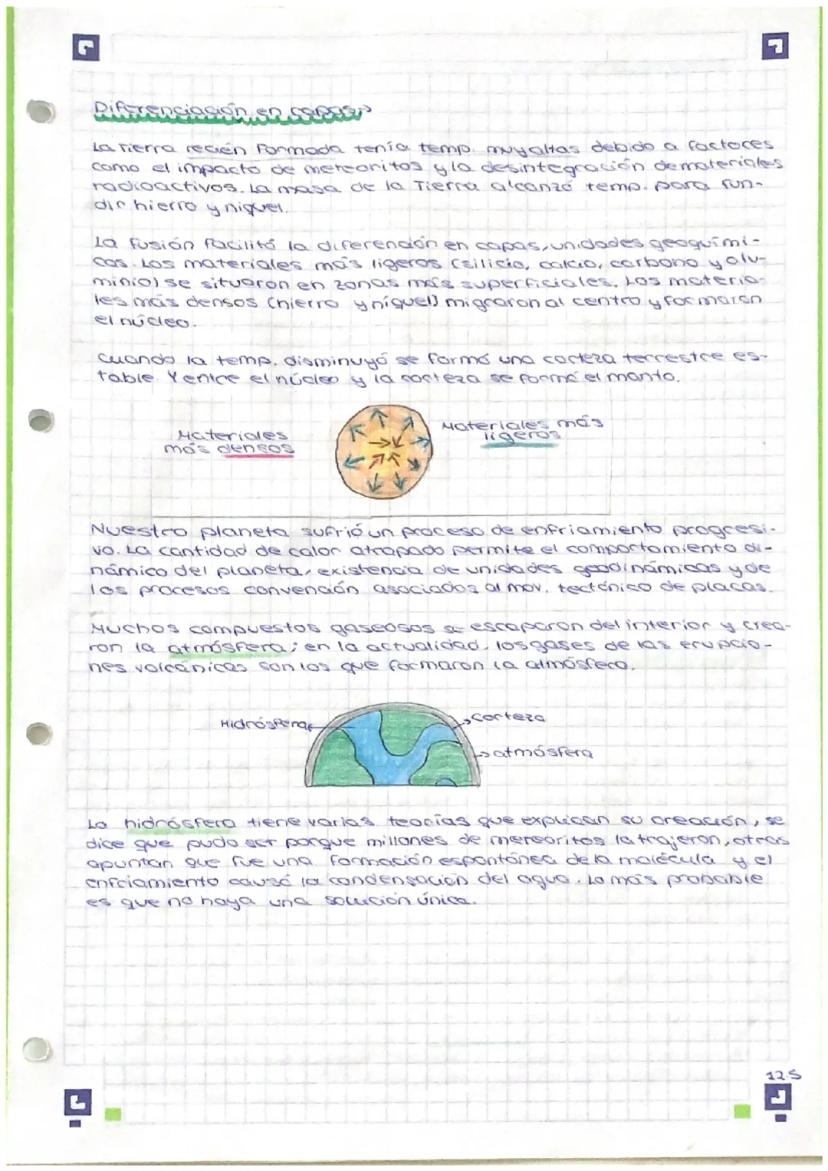 Diferenciación en capas
La Tierra recién formada tenía temp. muy altas debido a factores
como el impacto de meteoritos y la desintegración de materiales
radioactivos. La masa de la Tierra alcanzó temp. para fun-
dir hierro y níquel.
La fusión facilitó la diferención en capas, unidades geoquími-
cas. Los materiales más ligeros (silicio, calcio, carbono y alu-
minio) se situaron en zonas más superficiales. Los materia-
les más densos (hierro y níquel) migraron al centro y formaron
el núcleo.
Cuando la temp. disminuyó se formó una corteza terrestre es-
table. Y entre el núcleo y la corteza se formó el manto.
Materiales
más densos
Materiales más
ligeros
Nuestro planeta sufrió un proceso de enfriamiento progresi-
vo. La cantidad de calor atrapado permite el comportamiento di-
námico del planeta, existencia de unidades geodinámicas y de
los procesos convención asociados al mov. tectónico de placas.
Muchos compuestos gaseosos se escaparon del interior y crea-
ron la atmósfera; en la actualidad, los gases de las erupcio-
nes volcánicas son los que formaron la atmósfera.
Hidrósfera
Corteza
atmósfera
La hidrósfera tiene varias teorías que explican su creación, se
dice que pudo ser porque millones de meteoritos la trajeron, otras
apuntan que fue una formación espontánea de la molécula y el
enfriamiento causó la condensación del agua. Lo más probable
es que no haya una solución única.
12.5